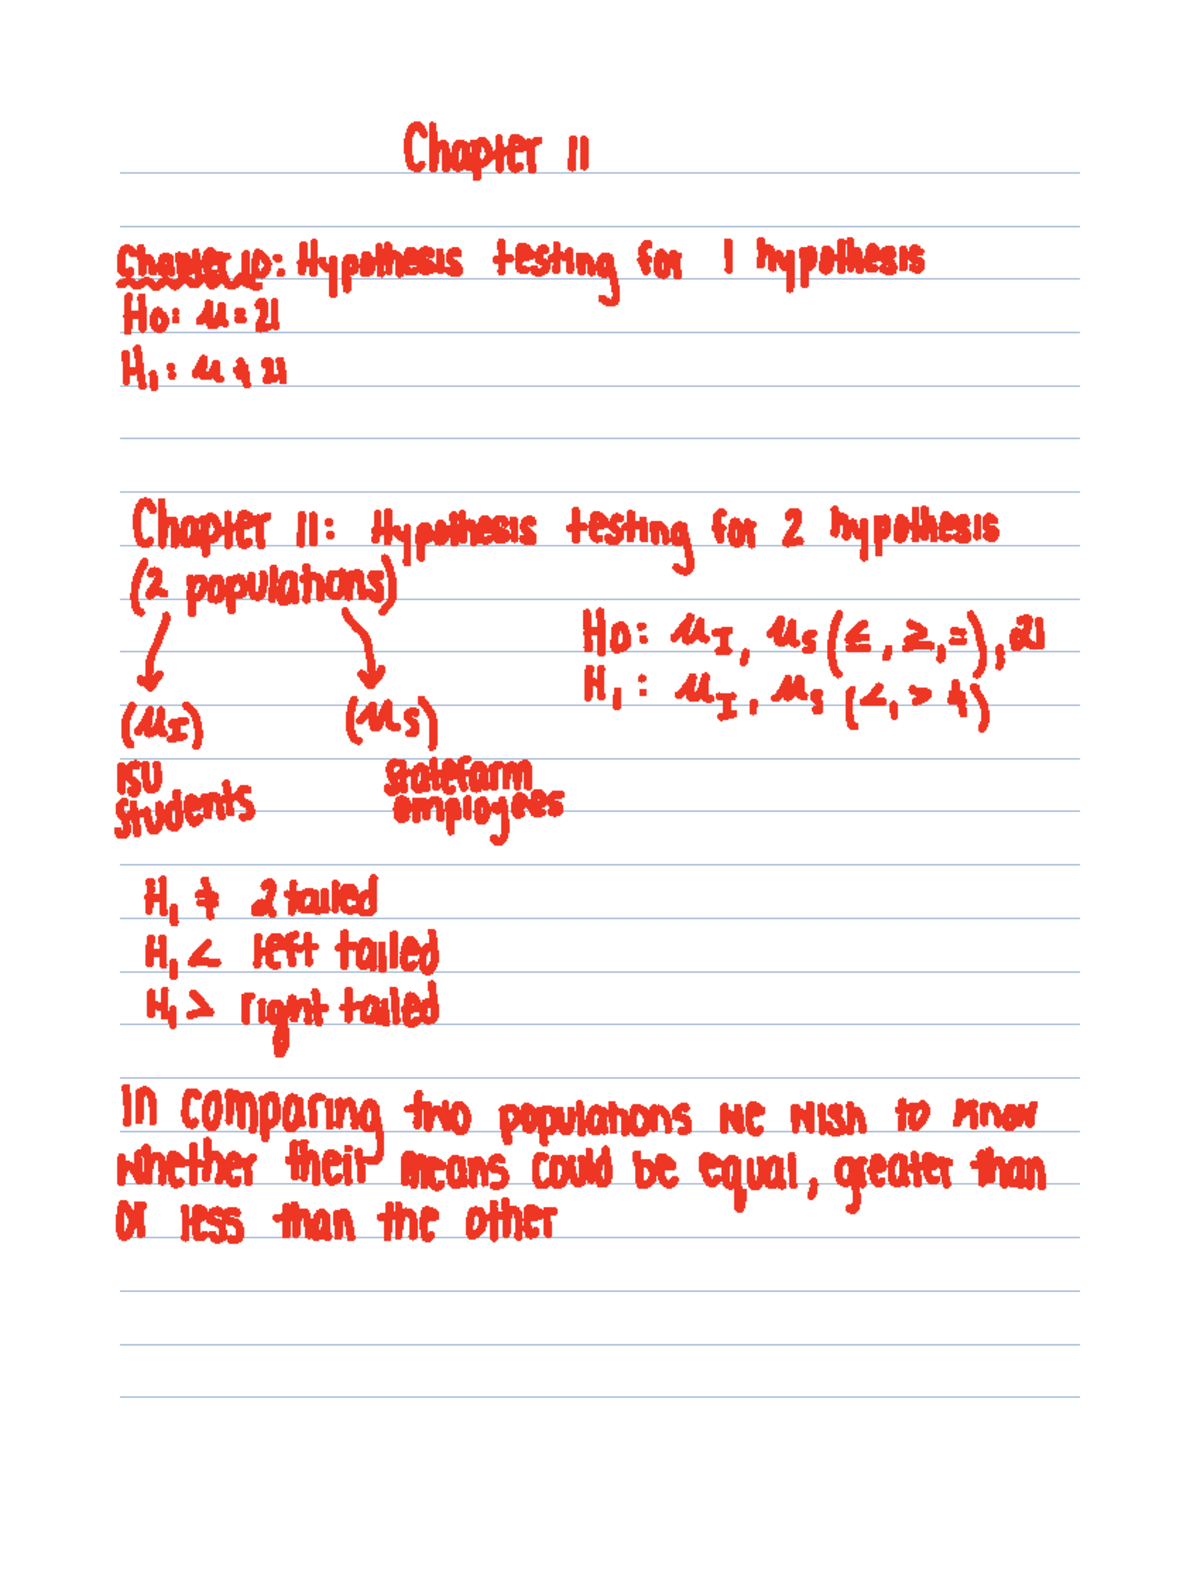 Chapter 11
Chapter 10: Hypothesis testing for 1 hypothesis
Ho: μ = 21
H₁: μ ≠ 21
Chapter 11: Hypothesis testing for 2 hypothesis
(2 populations)
Ho: μI, μs (≤, ≥, =), 21
H₁: μI, μs (<, > ≠)
(μI) (μs)
ISU Stateform
Students employees
H₁ ≠ 2 tailed
H₁ < left tailed
H₁ > right tailed
In comparing two populations we wish to know
whether their means could be equal, greater than
or less than the other